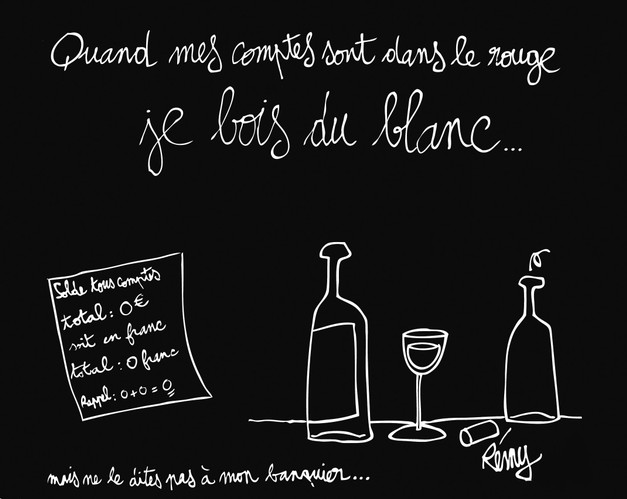 Quand mes comptes sont dans le rouge
je bois du blanc...
Solde tous comptes
total: 0€
soit en franc
total: 0 franc
Rappel: 0+0=0
Rémy
mais ne le dites pas à mon banquier...